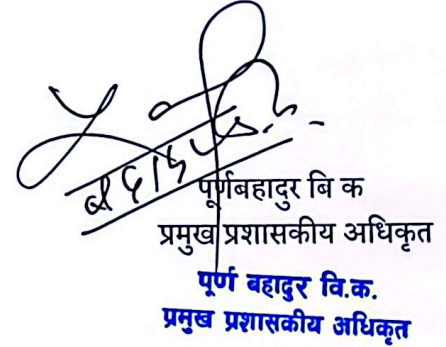 पूर्णबहादुर बि क
प्रमुख प्रशासकीय अधिकृत
पूर्ण बहादुर वि.क.
प्रमुख प्रशासकीय अधिकृत